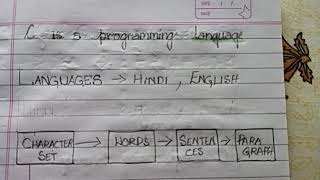 DATE
PAGE
C is a programming language
LANGUAGES → HINDI , ENGLISH
CHARACTER SET → WORDS → SENTENCES → PARAGRAPH